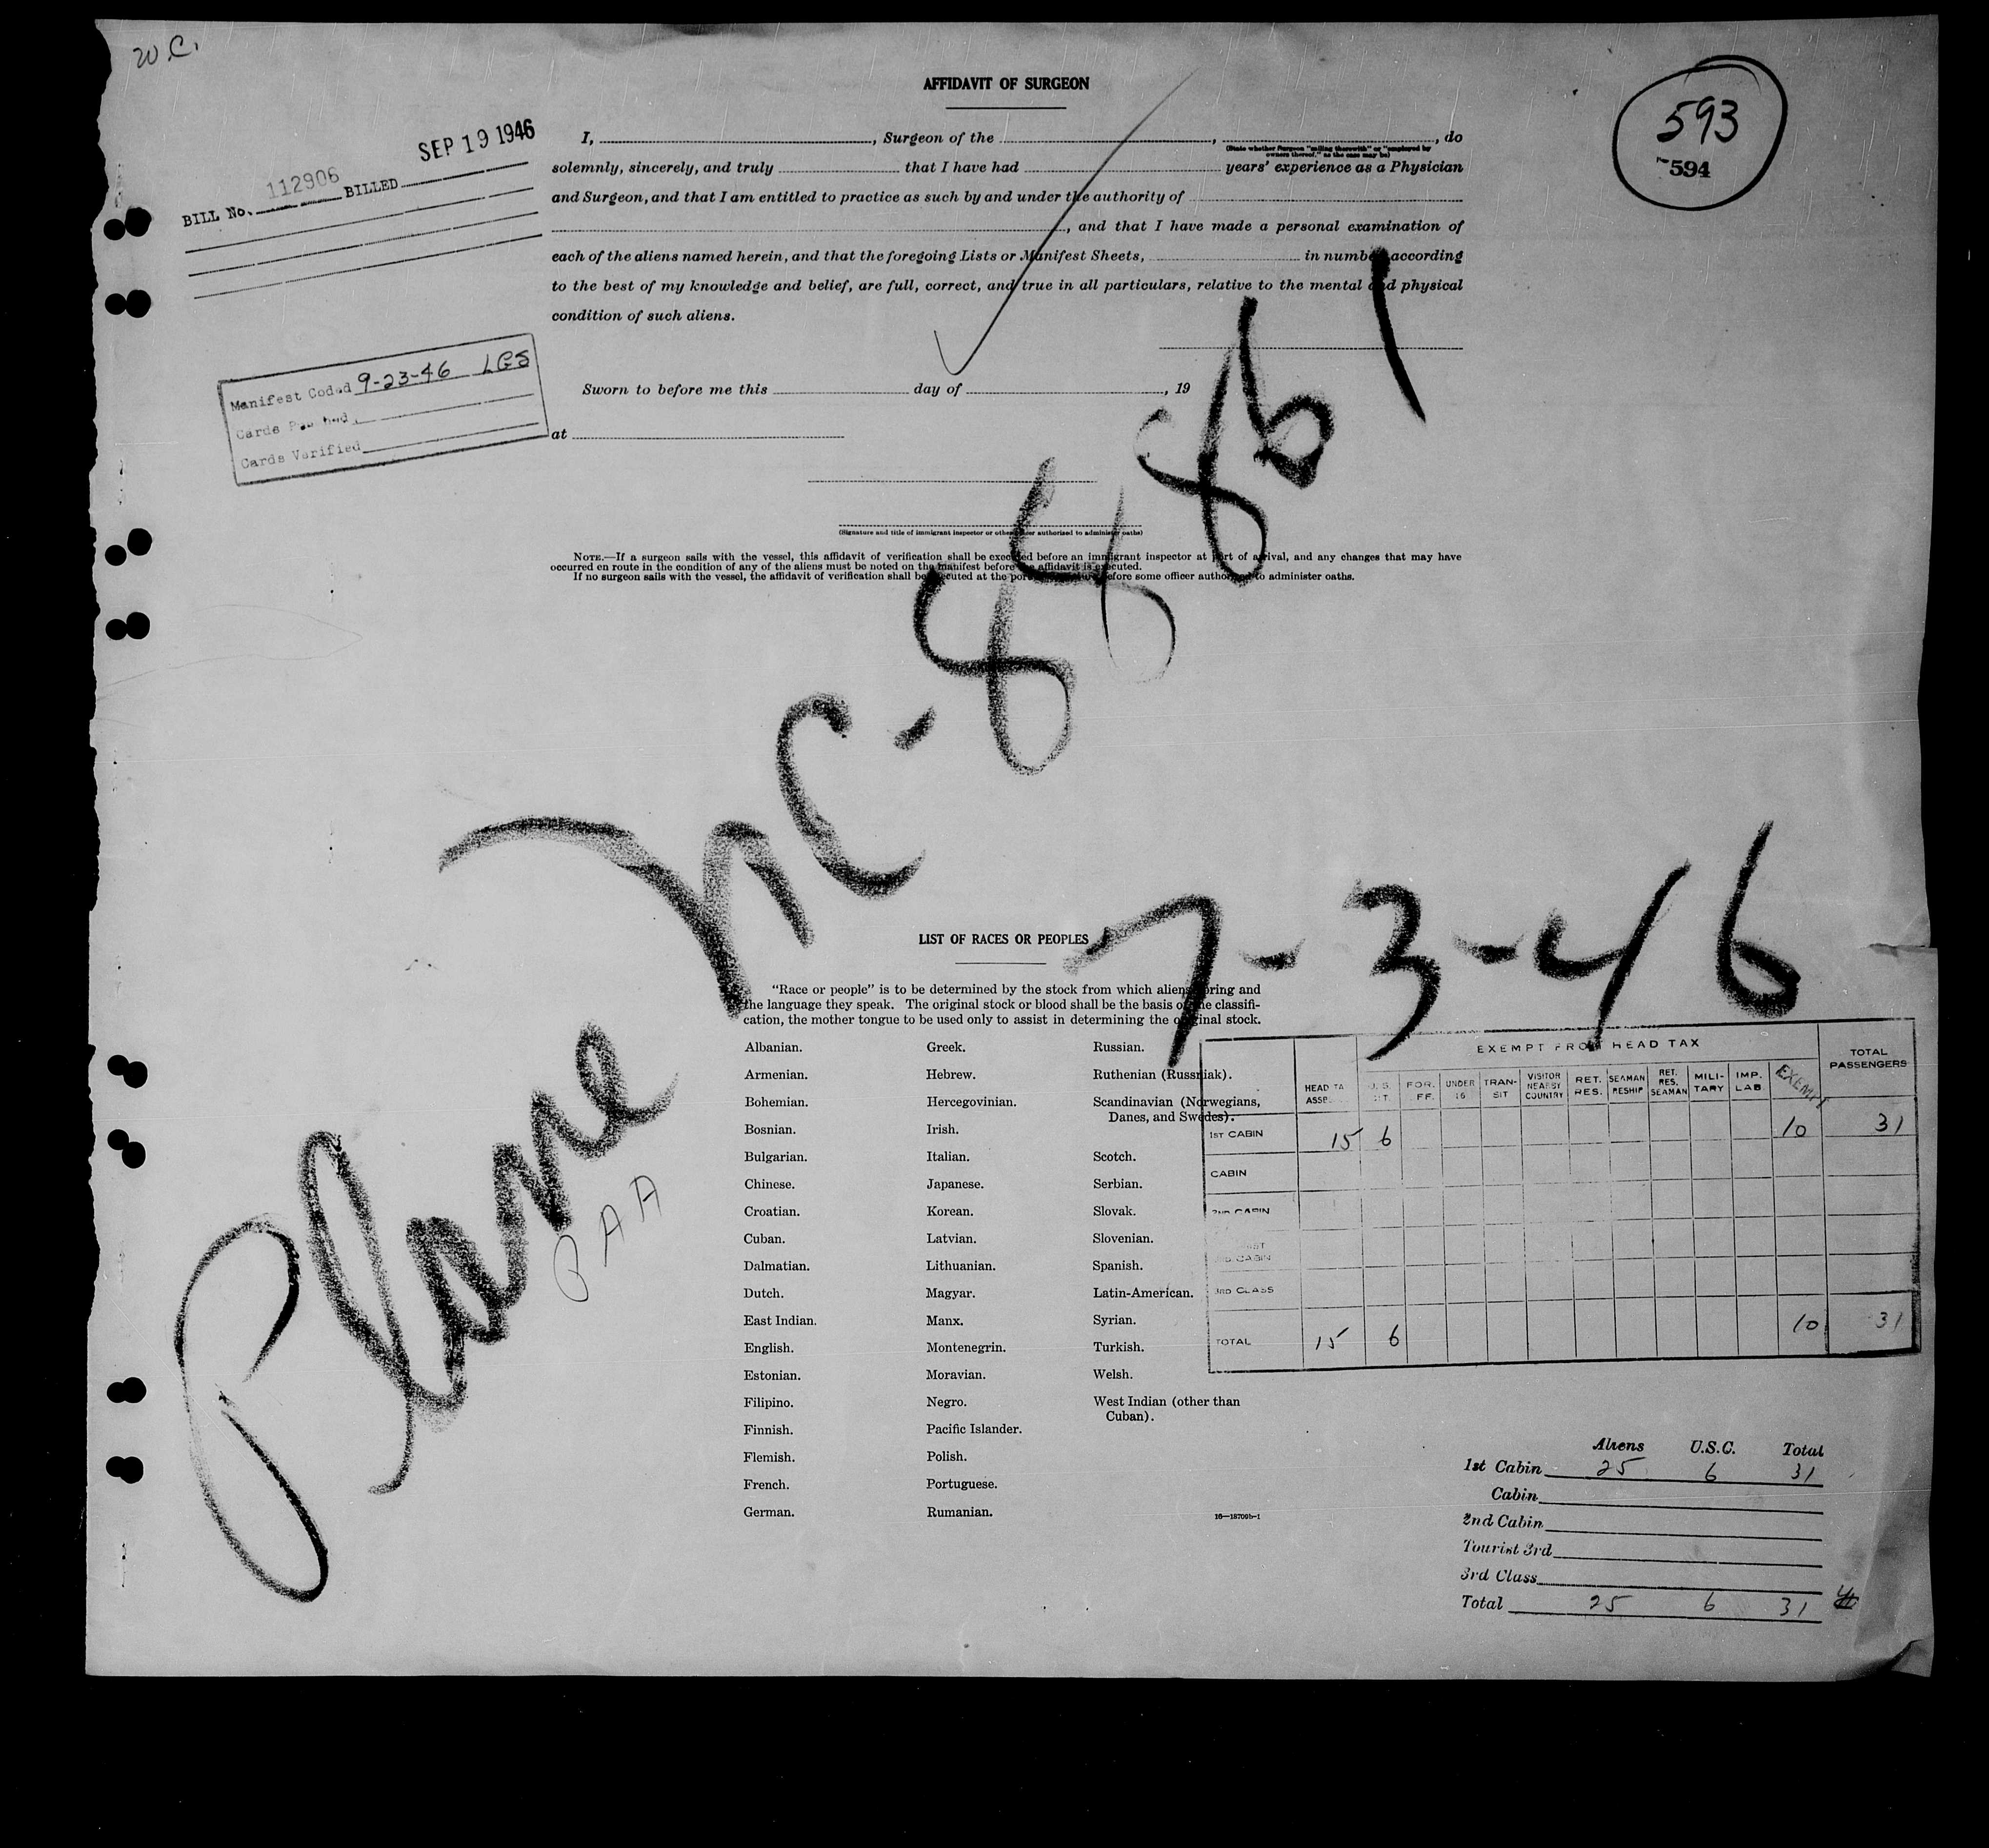 W.C.
AFFIDAVIT OF SURGEON
593
594
SEP 19 1946
BILL No. 112906 BILLED
I, , Surgeon of the , , do
(State whether Surgeon "sailing therewith" or "employed by
owners thereof," as the case may be)
solemnly, sincerely, and truly that I have had years' experience as a Physician
and Surgeon, and that I am entitled to practice as such by and under the authority of
, and that I have made a personal examination of
each of the aliens named herein, and that the foregoing Lists or Manifest Sheets, in number according
to the best of my knowledge and belief, are full, correct, and true in all particulars, relative to the mental and physical
condition of such aliens.
Manifest Coded 9-23-46 LGS
Cards Punched
Cards Verified
Sworn to before me this day of , 19
at
(Signature and title of immigrant inspector or other officer authorized to administer oaths)
NOTE.—If a surgeon sails with the vessel, this affidavit of verification shall be executed before an immigrant inspector at port of arrival, and any changes that may have
occurred en route in the condition of any of the aliens must be noted on the manifest before the affidavit is executed.
If no surgeon sails with the vessel, the affidavit of verification shall be executed at the port before some officer authorized to administer oaths.
Plane NC-88861
7-3-46
PAA
LIST OF RACES OR PEOPLES
"Race or people" is to be determined by the stock from which aliens spring and
the language they speak. The original stock or blood shall be the basis of the classifi-
cation, the mother tongue to be used only to assist in determining the original stock.
Albanian.
Armenian.
Bohemian.
Bosnian.
Bulgarian.
Chinese.
Croatian.
Cuban.
Dalmatian.
Dutch.
East Indian.
English.
Estonian.
Filipino.
Finnish.
Flemish.
French.
German.
Greek.
Hebrew.
Hercegovinian.
Irish.
Italian.
Japanese.
Korean.
Latvian.
Lithuanian.
Magyar.
Manx.
Montenegrin.
Moravian.
Negro.
Pacific Islander.
Polish.
Portuguese.
Rumanian.
Russian.
Ruthenian (Russniak).
Scandinavian (Norwegians,
Danes, and Swedes).
Scotch.
Serbian.
Slovak.
Slovenian.
Spanish.
Latin-American.
Syrian.
Turkish.
Welsh.
West Indian (other than
Cuban).
16—18709b-1
EXEMPT FROM HEAD TAX TOTAL PASSENGERS
HEAD TA ASSE U.S. CIT. FOR. FF. UNDER 16 TRAN-SIT VISITOR NEARBY COUNTRY RET. RES. SEAMAN RESHIP RET. RES. SEAMAN MILI-TARY IMP. LAB EXEMPT
1ST CABIN 15 6 10 31
CABIN
2ND CABIN
3RD CABIN
3RD CLASS
TOTAL 15 6 10 31
Aliens U.S.C. Total
1st Cabin 25 6 31
Cabin
2nd Cabin
Tourist 3rd
3rd Class
Total 25 6 31